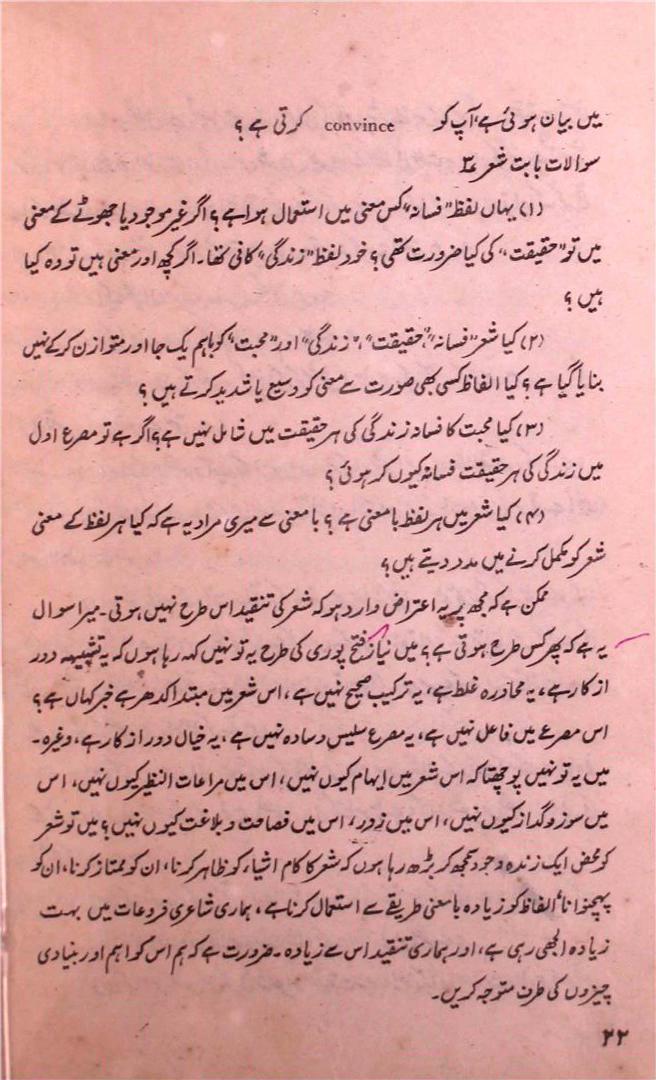 میں بیان ہوئی ہے، آپ کو convince کرتی ہے؟
سوالات بابت شعر ۳
(۱) یہاں لفظ "فسانہ" کس معنی میں استعمال ہوا ہے؟ اگر غیر موجود یا جھوٹے کے معنی
میں تو "حقیقت" کی کیا ضرورت تھی؟ خود لفظ "زندگی" کافی تھا۔ اگر کچھ اور معنی ہیں تو وہ کیا
ہیں؟
(۲) کیا شعر "فسانہ"، "حقیقت"، "زندگی" اور "محبت" کو باہم یک جا اور متوازن کرکے نہیں
بنایا گیا ہے؟ کیا الفاظ کسی بھی صورت سے معنی کو وسیع یا شدید کرتے ہیں؟
(۳) کیا محبت کا فسانہ زندگی کی ہر حقیقت میں شامل نہیں ہے؟ اگر ہے تو مصرع اول
میں زندگی کی ہر حقیقت فسانہ کیوں کر ہوئی؟
(۴) کیا شعر میں ہر لفظ با معنی ہے؟ با معنی سے میری مراد یہ ہے کہ کیا ہر لفظ کے معنی
شعر کو مکمل کرنے میں مدد دیتے ہیں؟
ممکن ہے کہ مجھ پر یہ اعتراض وارد ہو کہ شعر کی تنقید اس طرح نہیں ہوتی۔ میرا سوال
یہ ہے کہ پھر کس طرح ہوتی ہے؟ میں نیاز فتح پوری کی طرح یہ تو نہیں کہہ رہا ہوں کہ یہ تشبیہہ دور
از کار ہے، یہ محاورہ غلط ہے، یہ ترکیب صحیح نہیں ہے، اس شعر میں مبتدا کدھر ہے خبر کہاں ہے؟
اس مصرعے میں فاعل نہیں ہے، یہ مصرع سلیس و سادہ نہیں ہے، یہ خیال دور از کار ہے، وغیرہ۔
میں یہ تو نہیں پوچھتا کہ اس شعر میں ایہام کیوں نہیں، اس میں مراعات النظیر کیوں نہیں، اس
میں سوز و گداز کیوں نہیں، اس میں زور، اس میں فصاحت و بلاغت کیوں نہیں؟ میں تو شعر
کو محض ایک زندہ وجود سمجھ کر پڑھ رہا ہوں کہ شعر کا کام اشیاء کو ظاہر کرنا، ان کو ممتاز کرنا، ان کو
پہچنوانا، الفاظ کو زیادہ با معنی طریقے سے استعمال کرنا ہے، ہماری شاعری فروعات میں بہت
زیادہ الجھی رہی ہے، اور ہماری تنقید اس سے زیادہ۔ ضرورت ہے کہ ہم اس کو اہم اور بنیادی
چیزوں کی طرف متوجہ کریں۔
۲۲